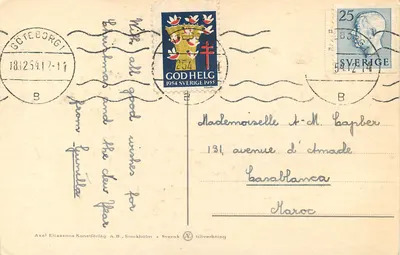 GÖTEBORG 1
18.12.54.17-14
B
With all good wishes for
Christmas and the New Year
from Gunilla
GOD HELG
1954 SVERIGE 1955
25
SVERIGE
B
Mademoiselle A-M. Capber
131, avenue d'Amade
Casablanca
Maroc
Axel Eliassons Konstförlag A.B., Stockholm